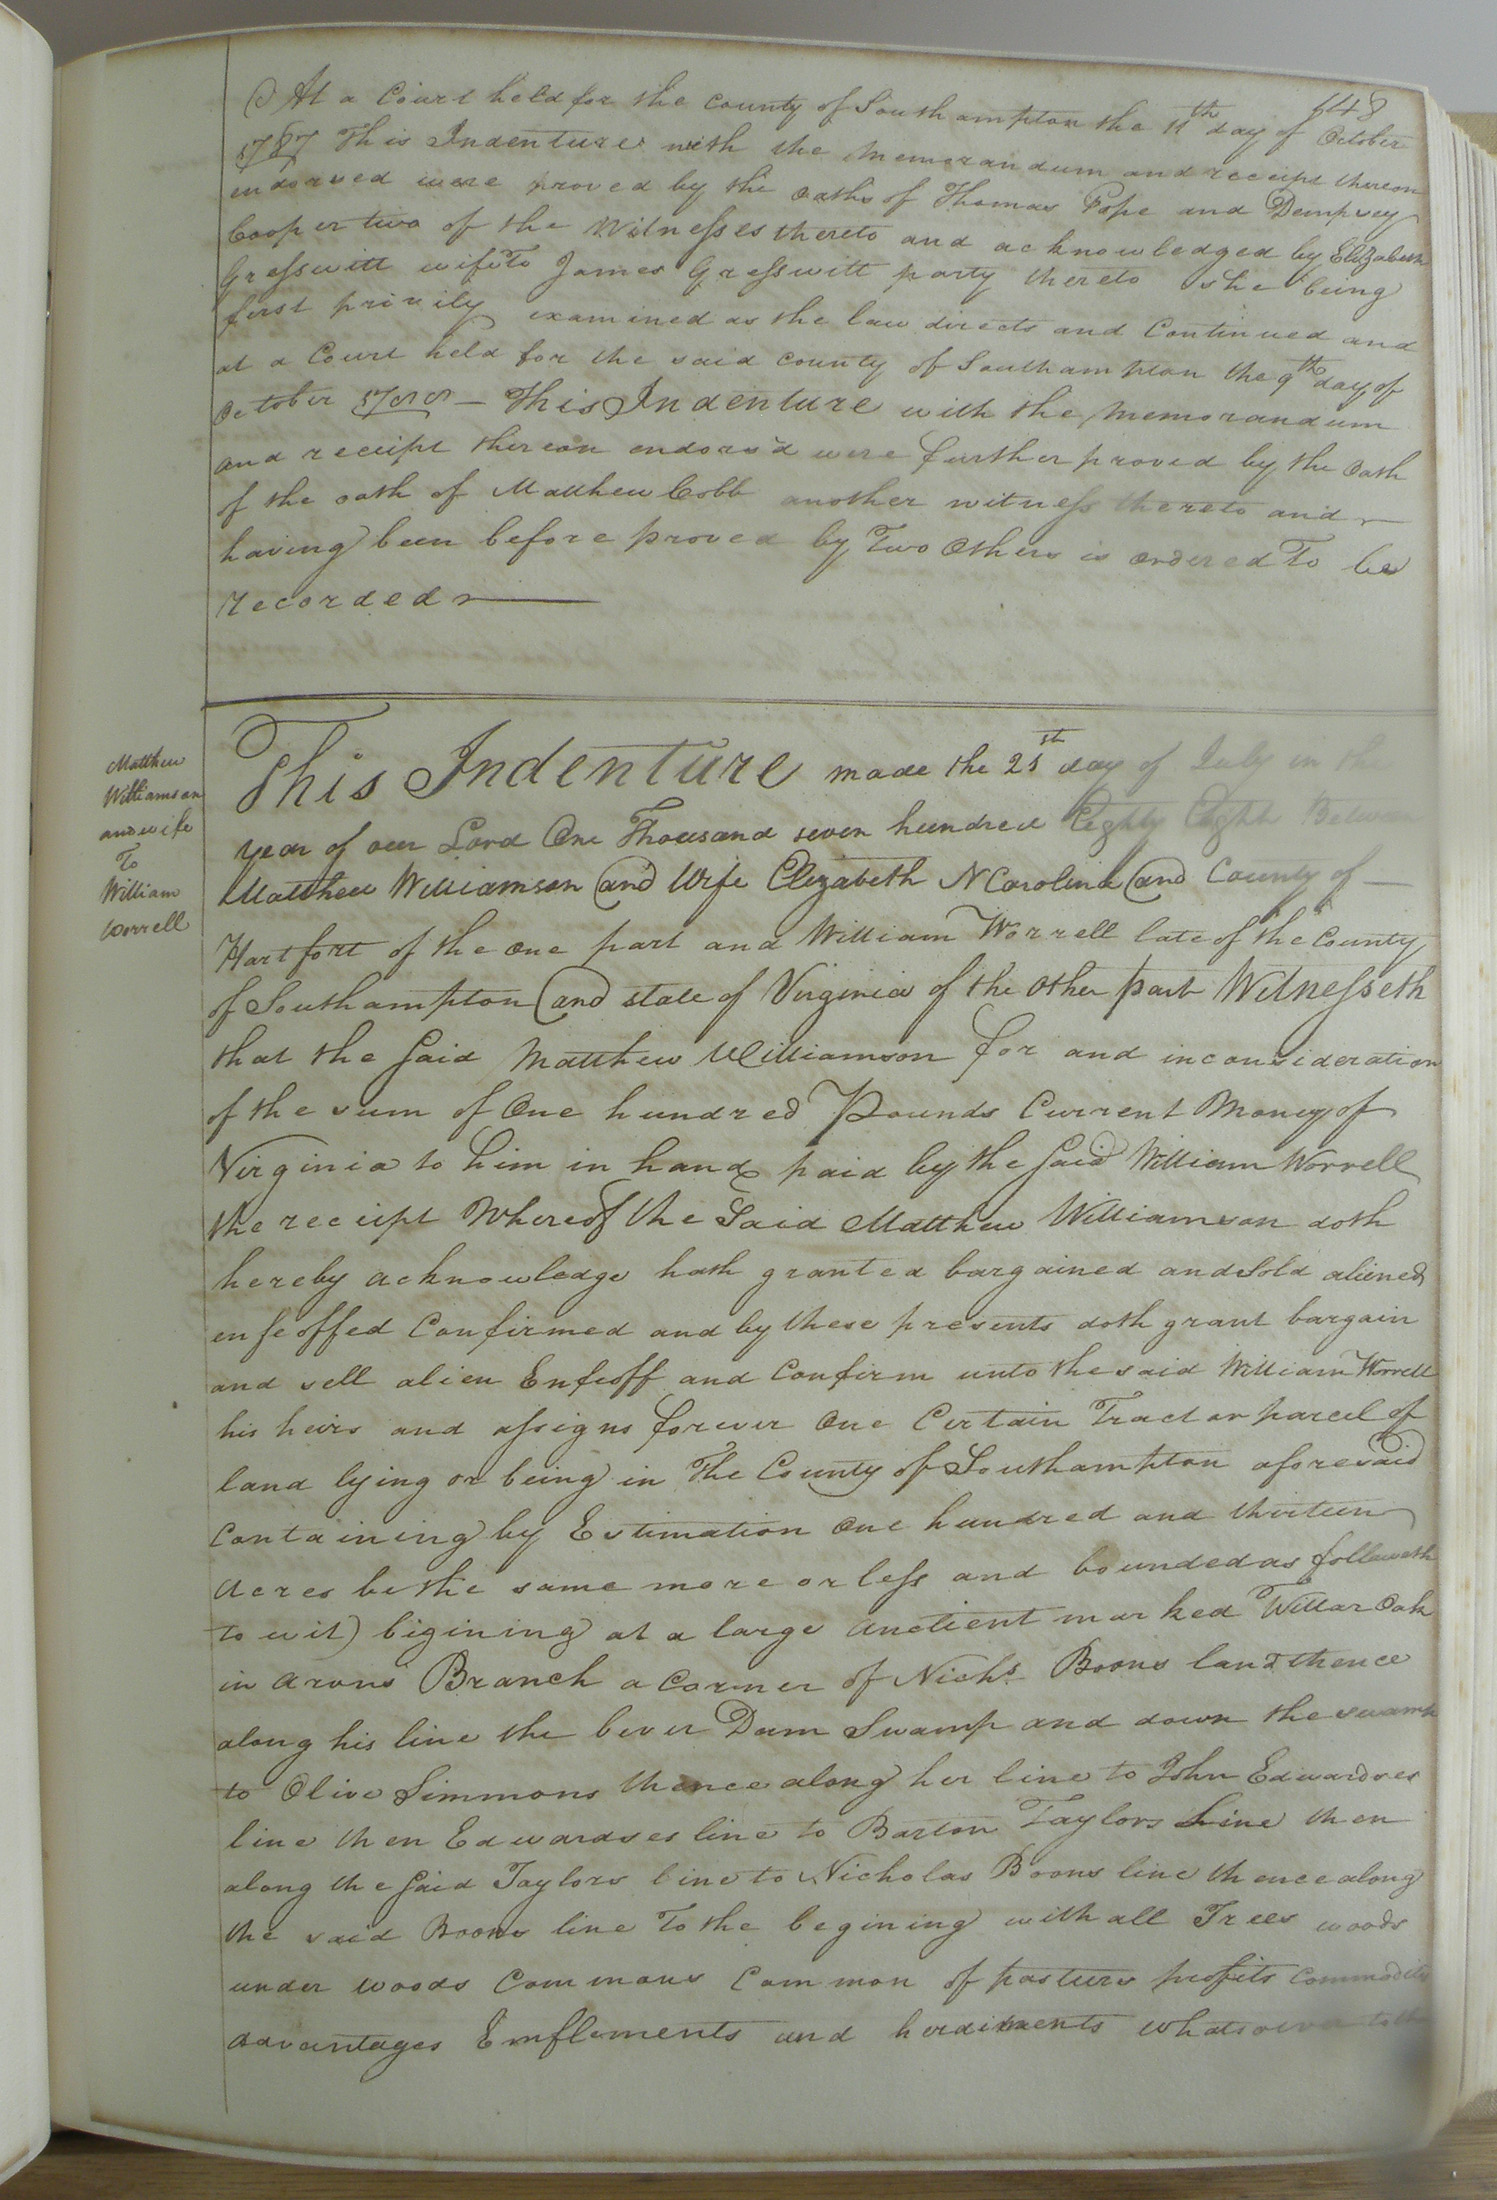 648
At a Court held for the County of Southampton the 11th day of October
1787 This Indenture with the Memorandum and receipt thereon
endorsed were proved by the oaths of Thomas Pope and Dempsey
Cooper two of the Witnesses thereto and acknowledged by Elizabeth
Gresswitt wife To James Gresswitt party thereto she being
first privily examined as the law directs and Continued and
at a Court held for the said county of Southampton the 9th day of
October 1788 – This Indenture with the Memorandum
and receipt thereon endors'd were further proved by the Oath
of the oath of Matthew Cobb another witness thereto and
having been before proved by Two Others is ordered To be
recorded
Matthew
Williamson
and wife
To
William
Worrell
This Indenture made the 21st day of July in the
year of our Lord One Thousand seven hundred Eighty Eight Between
Matthew Williamson and Wife Elizabeth N Carolina and County of
Hartfort of the one part and William Worrell late of the County
of Southampton and state of Virginia of the Other part Witnesseth
that the Said Matthew Williamson for and inconsideration
of the sum of One hundred Pounds Current Money of
Virginia to him in hand paid by the Said William Worrell
the receipt Whereof the Said Matthew Williamson doth
hereby acknowledge hath granted bargained and Sold aliened
enfeoffed Confirmed and by these presents doth grant bargain
and sell alien Enfeoff and Confirm unto the said William Worrell
his heirs and assigns forever One Certain Tract or parcel of
land lying or being in The County of Southampton aforesaid
Containing by Estimation One hundred and thirteen
Acres be the same more or less and bounded as followeth
to wit) bigining at a large anctient marked Willar Oak
in arons Branch a Corner of Nichs Boons land thence
along his line the bever Dam Swamp and down the swamp
to Olive Simmons thence along her line to John Edwardses
line then Edwardses line to Barton Taylors Line then
along the Said Taylors line to Nicholas Boons line thence along
the said Boons line To the begining with all Trees woods
under woods Commons Common of pasture profits Commodities
advantages Emflements and herdiments whatsoever to the